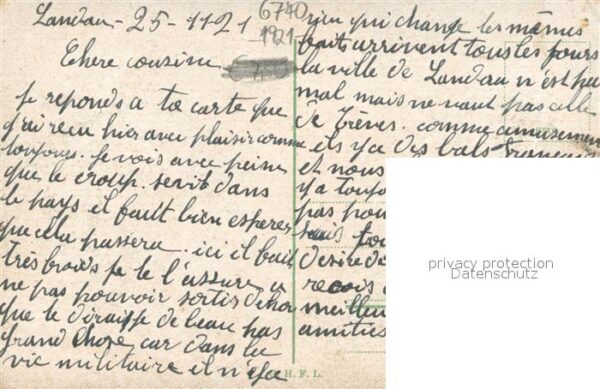 Landau - 25 - 11 21
6740
1921
Chere cousine
Je reponds a ta carte que
j'ai recu hier avec plaisir comme
toujours. je vois avec peine
que le croup. sevit dans
le pays il fault bien esperer
que cela passera. ici il fait
très froids je te l'assure a
ne pas pouvoir sortir dehor
que te dirais je de beau pas
grand chose car dans la
vie militaire il n'y a
rien qui change les mêmes
faits arrivent tous les jours
la ville de Landau n'est pas
mal mais ne vaut pas celle
de Trèves. comme amusement
ils y a des bals français
et nous
y a toujo
pas pou
suis tou
desire de
recois
meilleu
amitiés
H. F. L.
privacy protection
Datenschutz